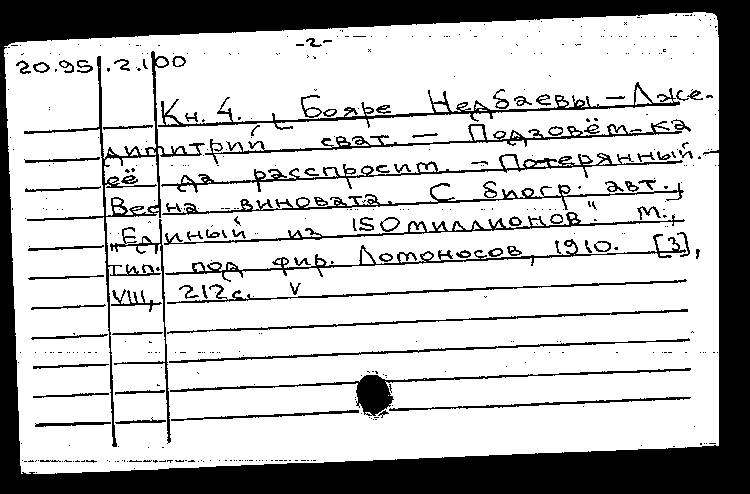 -2-
20.95.2.100
Кн. 4. Бояре Недбаевы. - Лже-
димитрий сват. - Подзовём-ка
её да расспросим. - Потерянный. -
Весна виновата. С биогр. авт.,
„Единый из 150 миллионов". М.,
тип. под фир. Ломоносов, 1910. [3],
VIII, 212с. v